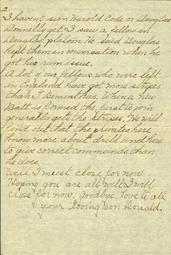 I haven't seen Harold Cole or Douglas
Donnelly yet. I saw a fellow in
Douglas' platoon. He said Douglas
kept them in conversation when he
got his rum issue.
A lot of our fellows who were left
in England have got more stripes
than themselves. When a new
Batt is formed the first to join
generally gets the stripes. He will
find out that the privates here
know more about drill and how
to give correct commands than
he does.
Well I must close for now.
Hoping you are all well I will
close for now. Goodbye, love to all
Your loving son Ronald.